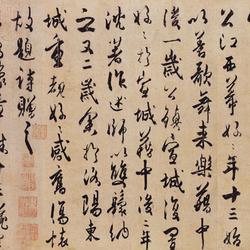 公江西幕好〻年十三始
以善歌舞来樂籍中
後一歲公鎮宣城復置
好〻於宣城籍中後二年
沈著作述師以雙鬟納
之又二歲余於洛陽東
城重覩好〻感舊傷懷
故題詩贈之